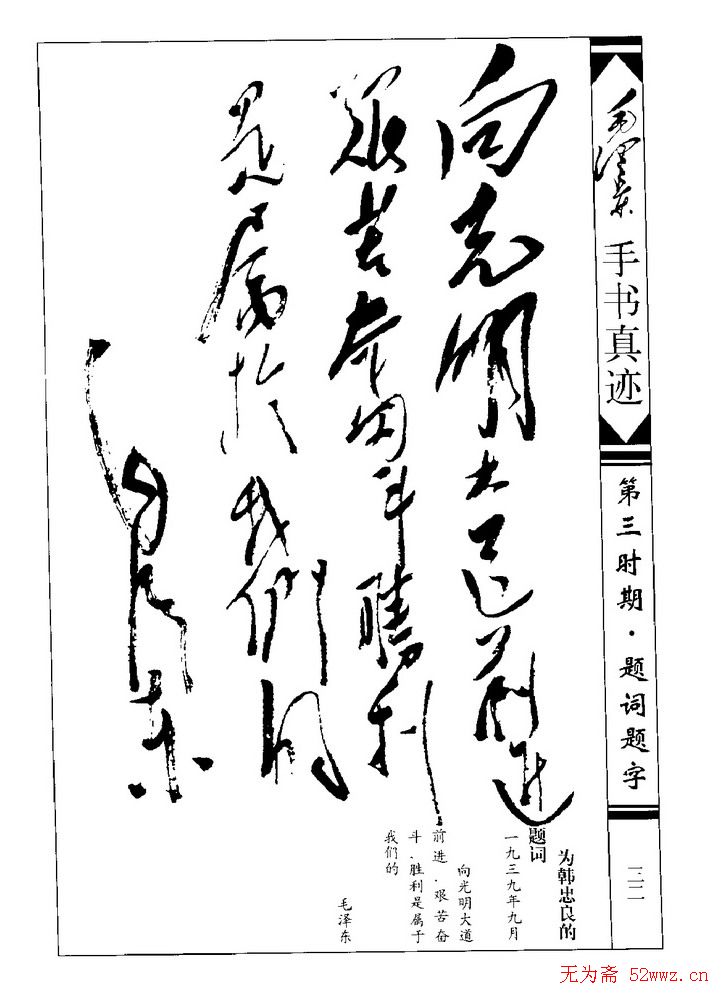 毛泽东
手书真迹
第三时期·题词题字
三二
向光明大道前进
艰苦奋斗胜利
是属於我們的
毛泽东
为韩忠良的
题词
一九三九年九月
向光明大道
前进.艰苦奋
斗.胜利是属于
我们的
毛泽东
无为斋 52wwz.cn